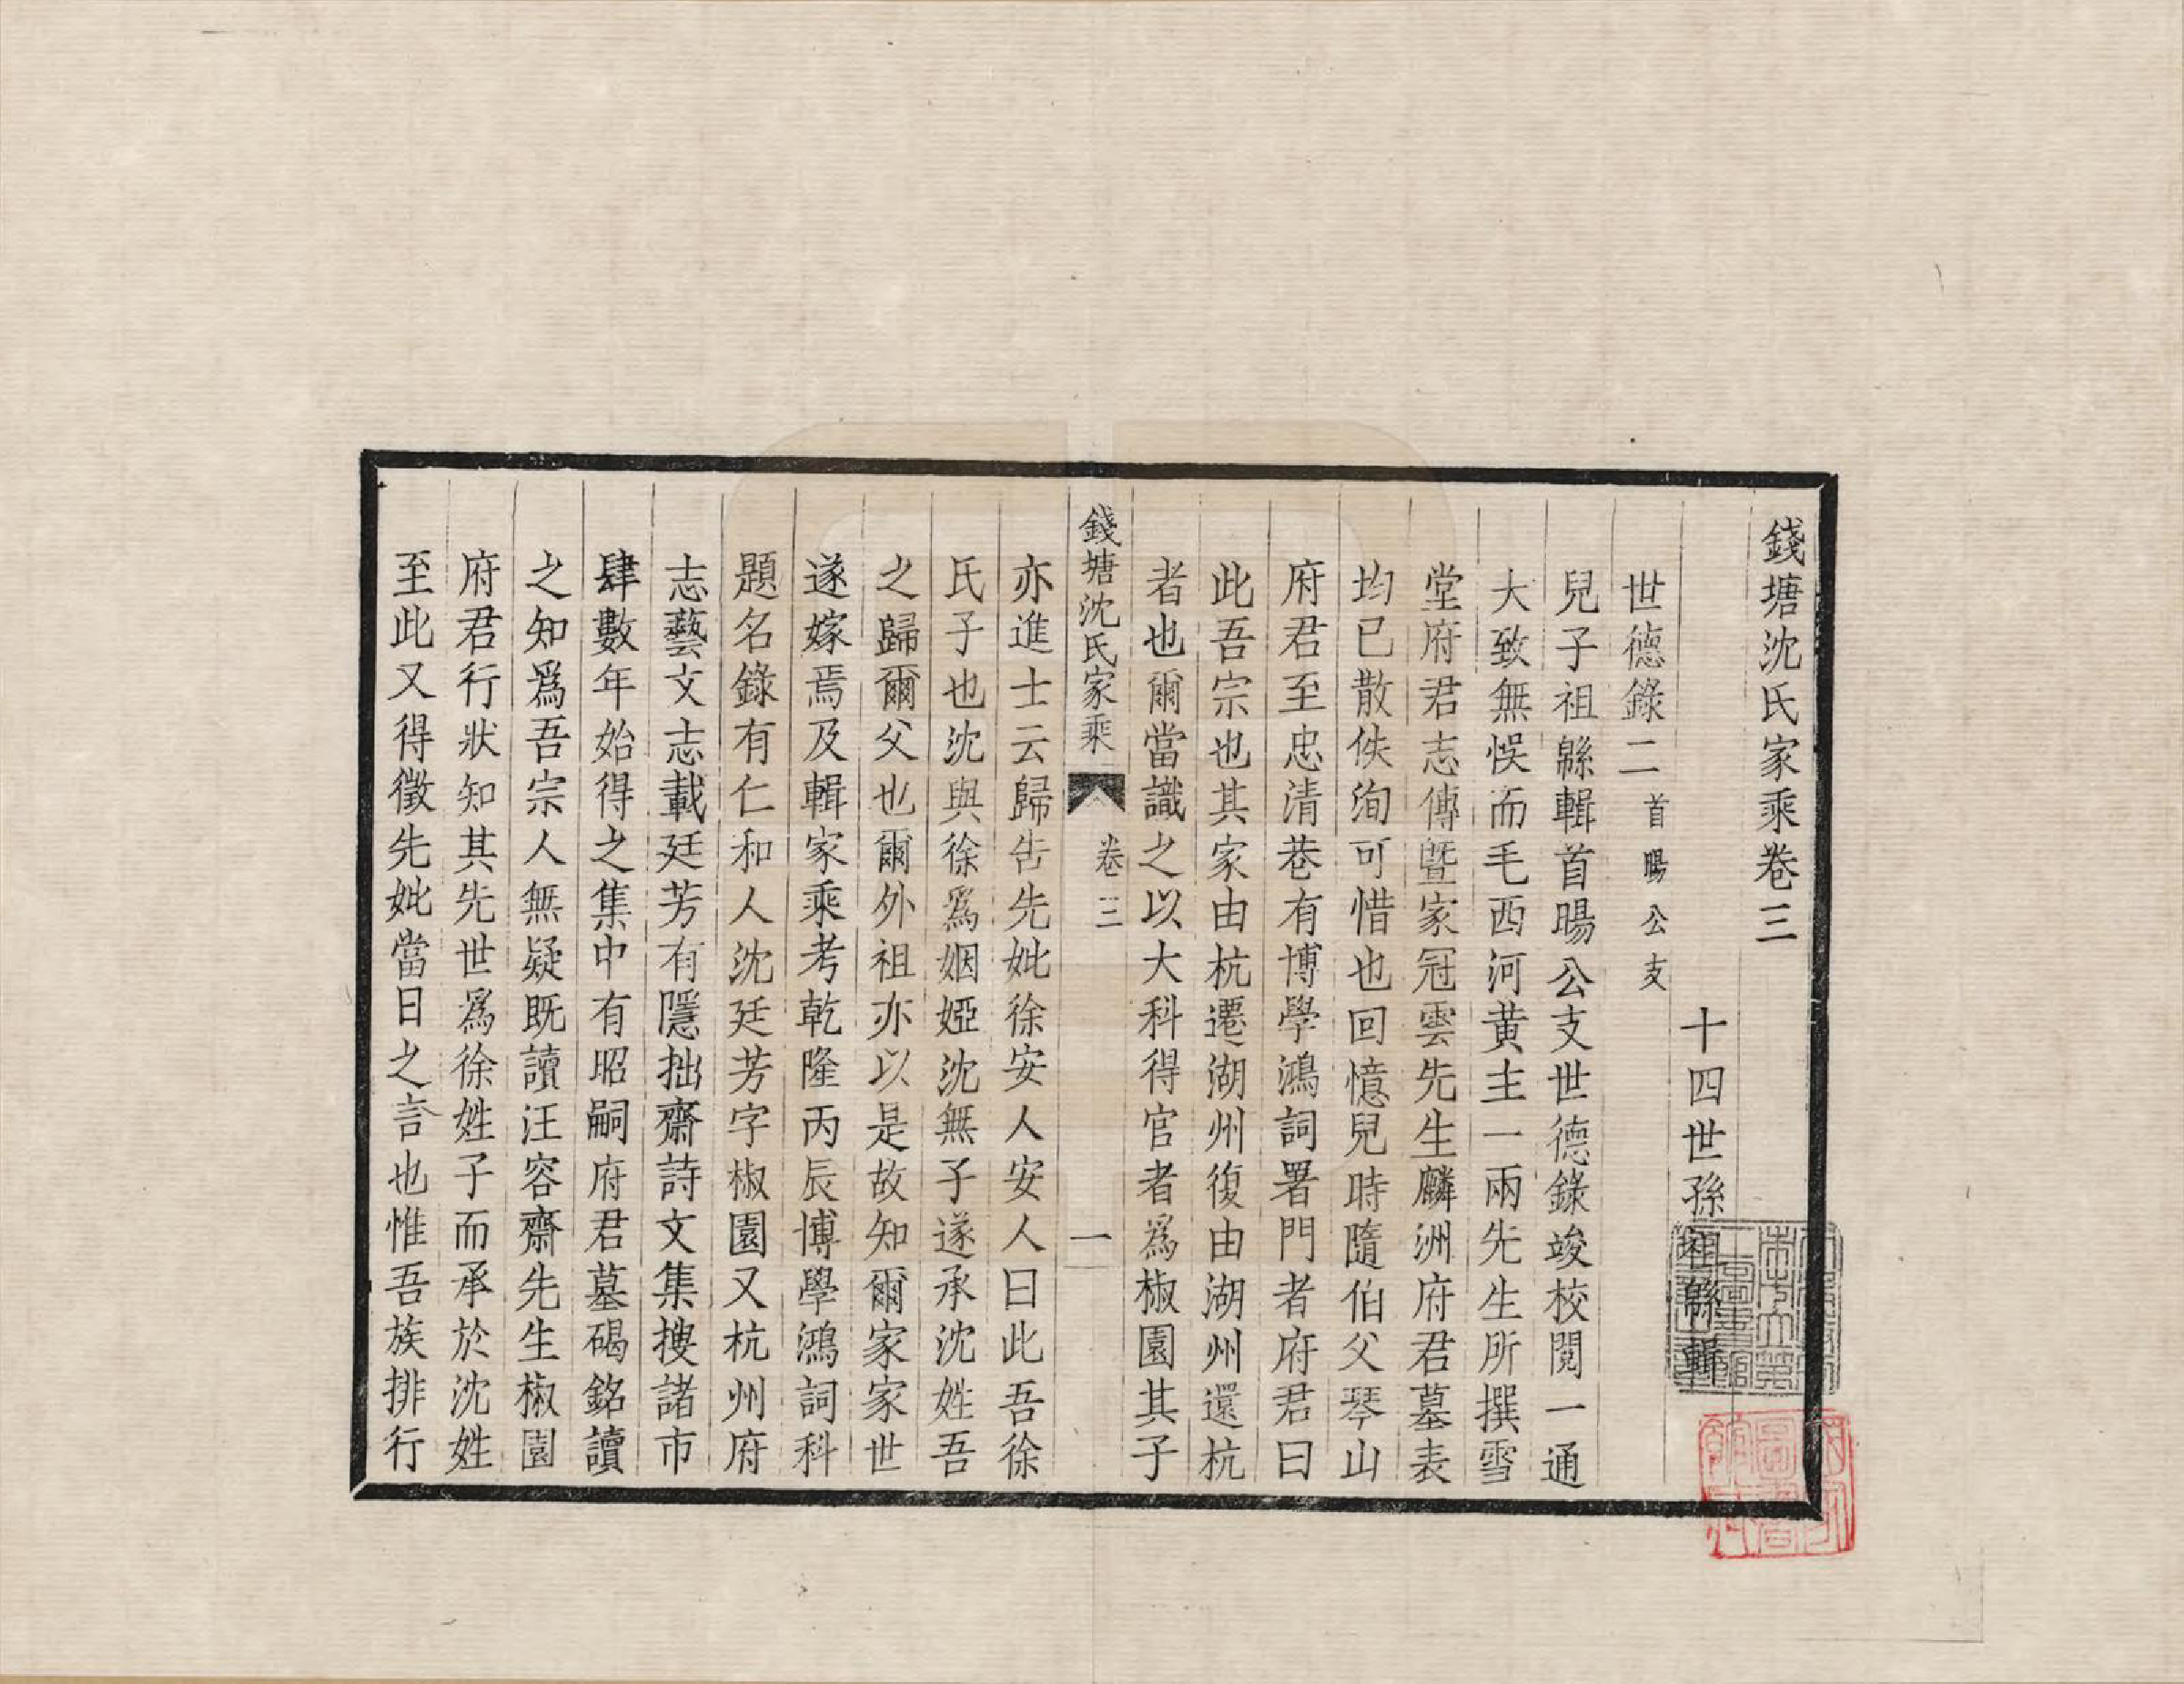 錢塘沈氏家乘卷三
十四世孫祖緜輯
世德錄二首暘公支
兒子祖緜輯首暘公支世德錄竣校閱一通
大致無悞而毛西河黄主一兩先生所撰雪
堂府君志傳曁家冠雲先生麟洲府君墓表
均已散佚洵可惜也回憶兒時隨伯父琴山
府君至忠清巷有博學鴻詞署門者府君曰
此吾宗也其家由杭遷湖州復由湖州還杭
者也爾當識之以大科得官者爲椒園其子
錢塘沈氏家乘 卷三 一
亦進士云歸告先妣徐安人安人曰此吾徐
氏子也沈與徐爲姻婭沈無子遂承沈姓吾
之歸爾父也爾外祖亦以是故知爾家家世
遂嫁焉及輯家乘考乾隆丙辰博學鴻詞科
題名錄有仁和人沈廷芳字椒園又杭州府
志藝文志載廷芳有隱拙齋詩文集搜諸市
肆數年始得之集中有昭嗣府君墓碣銘讀
之知爲吾宗人無疑既讀汪容齋先生椒園
府君行狀知其先世爲徐姓子而承於沈姓
至此又得徵先妣當日之言也惟吾族排行